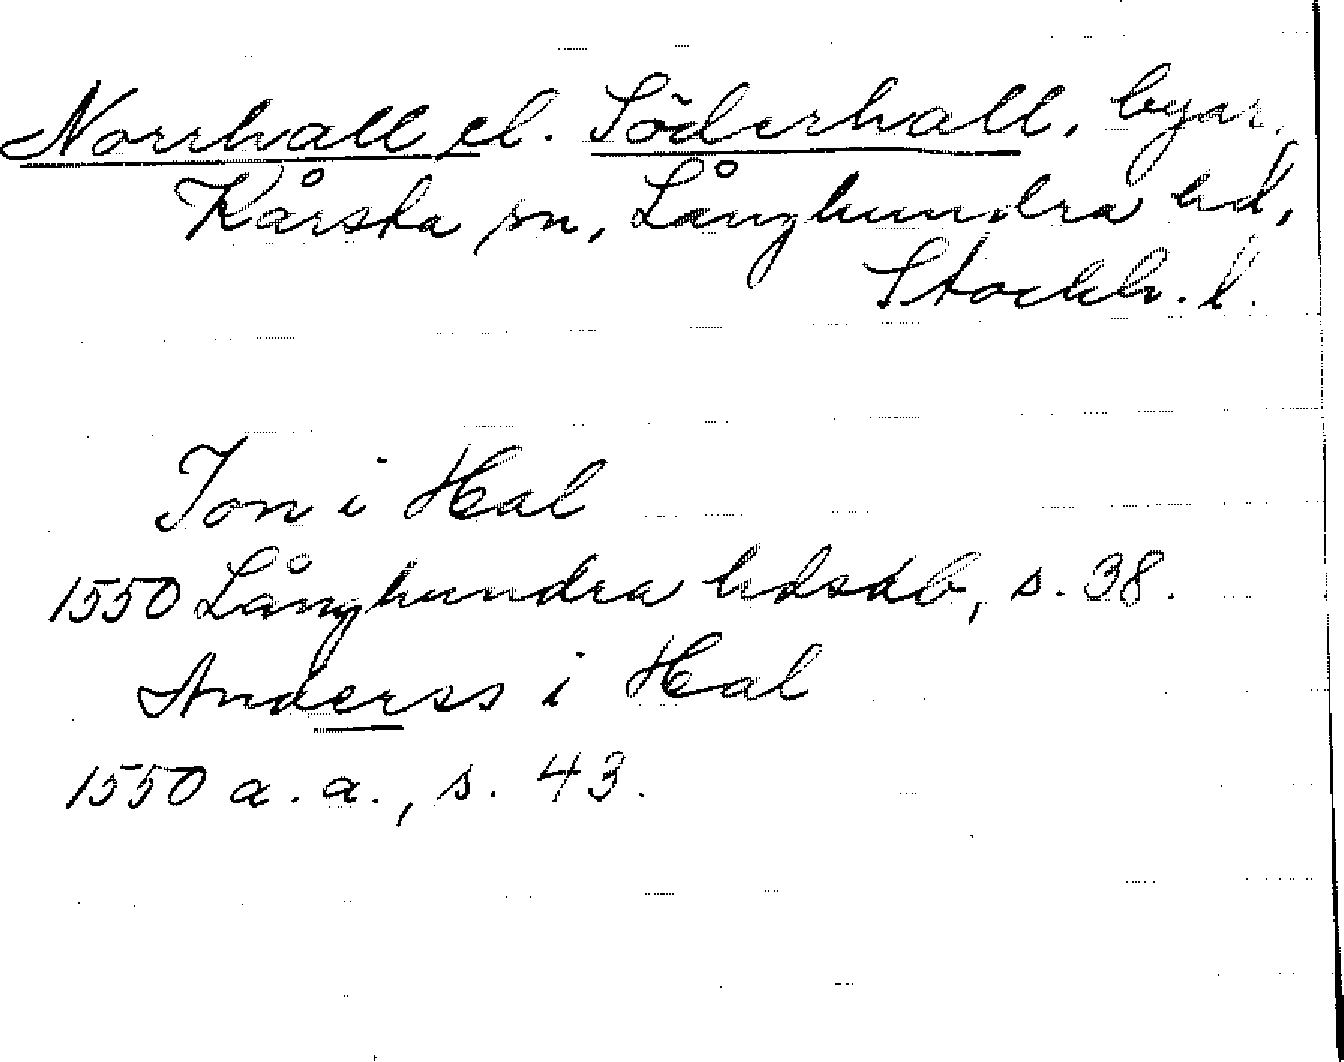 Norrhall el. Söderhall, byar,
Kårsta sn, Långhundra hd,
Stockh. l.
Jon i Hal
1550 Långhundra hdsdb, s. 38.
Anderss i Hal
1550 a. a., s. 43.